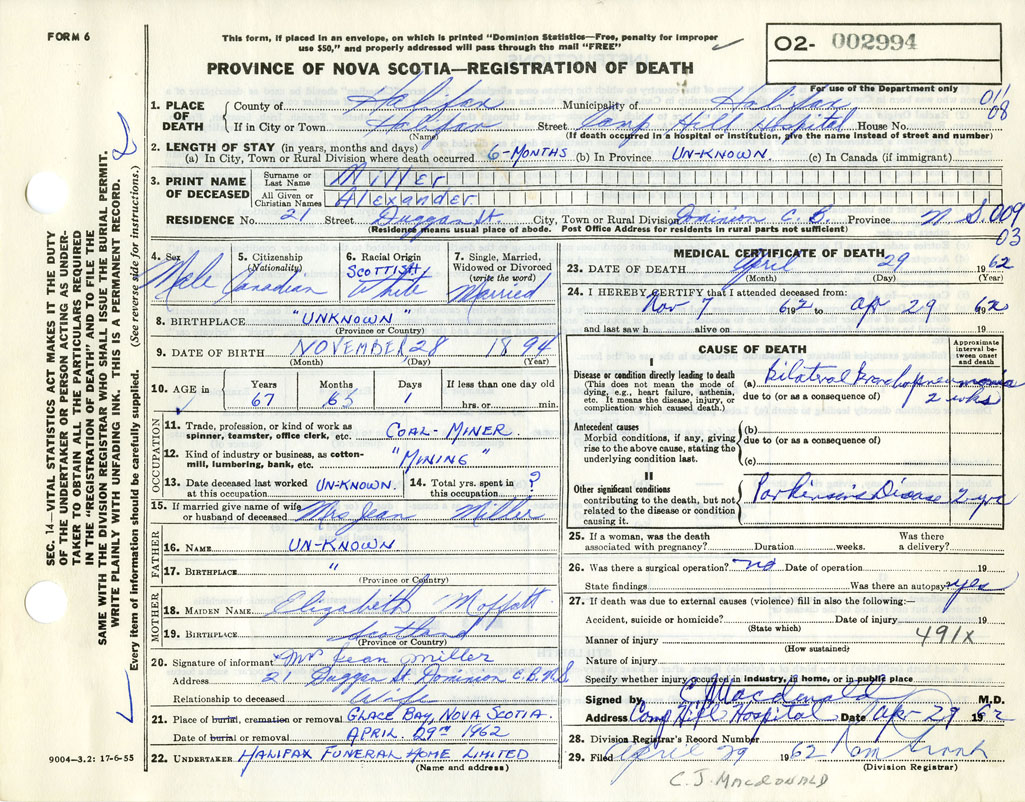 FORM 6
This form, if placed in an envelope, on which is printed "Dominion Statistics—Free, penalty for improper
use $50," and properly addressed will pass through the mail "FREE"
O2- 002994
PROVINCE OF NOVA SCOTIA—REGISTRATION OF DEATH
For use of the Department only
1. PLACE OF DEATH
County of Halifax Municipality of Halifax 011
08
If in City or Town Halifax Street Camp Hill Hospital House No.
(Name) (If death occurred in a hospital or institution, give the name instead of street and number)
2. LENGTH OF STAY (in years, months and days)
(a) In City, Town or Rural Division where death occurred 6-MONTHS (b) In Province UN-KNOWN. (c) In Canada (if immigrant)
3. PRINT NAME OF DECEASED
Surname or Last Name Miller
All Given or Christian Names Alexander
RESIDENCE No. 21 Street Duggan St City, Town or Rural Division Dominion C.B. Province N.S. 009
03
(Residence means usual place of abode. Post Office Address for residents in rural parts not sufficient)
4. Sex Male
5. Citizenship (Nationality) Canadian
6. Racial Origin SCOTTISH White
7. Single, Married, Widowed or Divorced (write the word) Married
8. BIRTHPLACE "UNKNOWN"
(Province or Country)
9. DATE OF BIRTH NOVEMBER 28 1894
(Month) (Day) (Year)
10. AGE in Years Months Days If less than one day old
67 5 1 hrs. or min.
OCCUPATION
11. Trade, profession, or kind of work as spinner, teamster, office clerk, etc. COAL-MINER
12. Kind of industry or business, as cotton-mill, lumbering, bank, etc. "MINING"
13. Date deceased last worked at this occupation UN-KNOWN.
14. Total yrs. spent in this occupation ?
15. If married give name of wife or husband of deceased Mrs Jean Miller
FATHER
16. NAME UN-KNOWN
17. BIRTHPLACE "
(Province or Country)
MOTHER
18. MAIDEN NAME Elizabeth Moffatt
19. BIRTHPLACE Scotland
(Province or Country)
20. Signature of informant Mrs Jean Miller
Address 21 Duggan St Dominion C.B. N.S
Relationship to deceased Wife
21. Place of burial, cremation or removal GLACE BAY, NOVA SCOTIA.
Date of burial or removal APRIL 29th 1962
22. UNDERTAKER HALIFAX FUNERAL HOME LIMITED
(Name and address)
MEDICAL CERTIFICATE OF DEATH
23. DATE OF DEATH April 29 1962
(Month) (Day) (Year)
24. I HEREBY CERTIFY that I attended deceased from:
Nov 7 to apr 29
and last saw h alive on 19
CAUSE OF DEATH
Approximate interval between onset and death
I
Disease or condition directly leading to death
(This does not mean the mode of dying, e.g., heart failure, asthenia, etc. It means the disease, injury, or complication which caused death.)
(a) Bilateral Bronchopneumonia
due to (or as a consequence of) 2 wks
Antecedent causes
Morbid conditions, if any, giving rise to the above cause, stating the underlying condition last.
(b)
due to (or as a consequence of)
(c)
II
Other significant conditions
contributing to the death, but not related to the disease or condition causing it.
Parkinson's Disease 2 yrs
25. If a woman, was the death associated with pregnancy? Duration weeks. Was there a delivery?
26. Was there a surgical operation? no Date of operation 19
State findings Was there an autopsy? yes
27. If death was due to external causes (violence) fill in also the following:—
Accident, suicide or homicide? Date of injury 19
(State which)
491X
Manner of injury
(How sustained)
Nature of injury
Specify whether injury occurred in industry, in home, or in public place
Signed by C. J. Macdonald M.D.
Address Camp Hill Hospital Date Apr 29 1962
28. Division Registrar's Record Number
29. Filed April 29 1962
(Division Registrar)
C. J. MACDONALD
SEC. 14—VITAL STATISTICS ACT MAKES IT THE DUTY
OF THE UNDERTAKER OR PERSON ACTING AS UNDER-
TAKER TO OBTAIN ALL THE PARTICULARS REQUIRED
IN THE "REGISTRATION OF DEATH" AND TO FILE THE
SAME WITH THE DIVISION REGISTRAR WHO SHALL ISSUE THE BURIAL PERMIT.
WRITE PLAINLY WITH UNFADING INK. THIS IS A PERMANENT RECORD.
Every item of information should be carefully supplied. (See reverse side for instructions.)
9004—3.2: 17-6-55